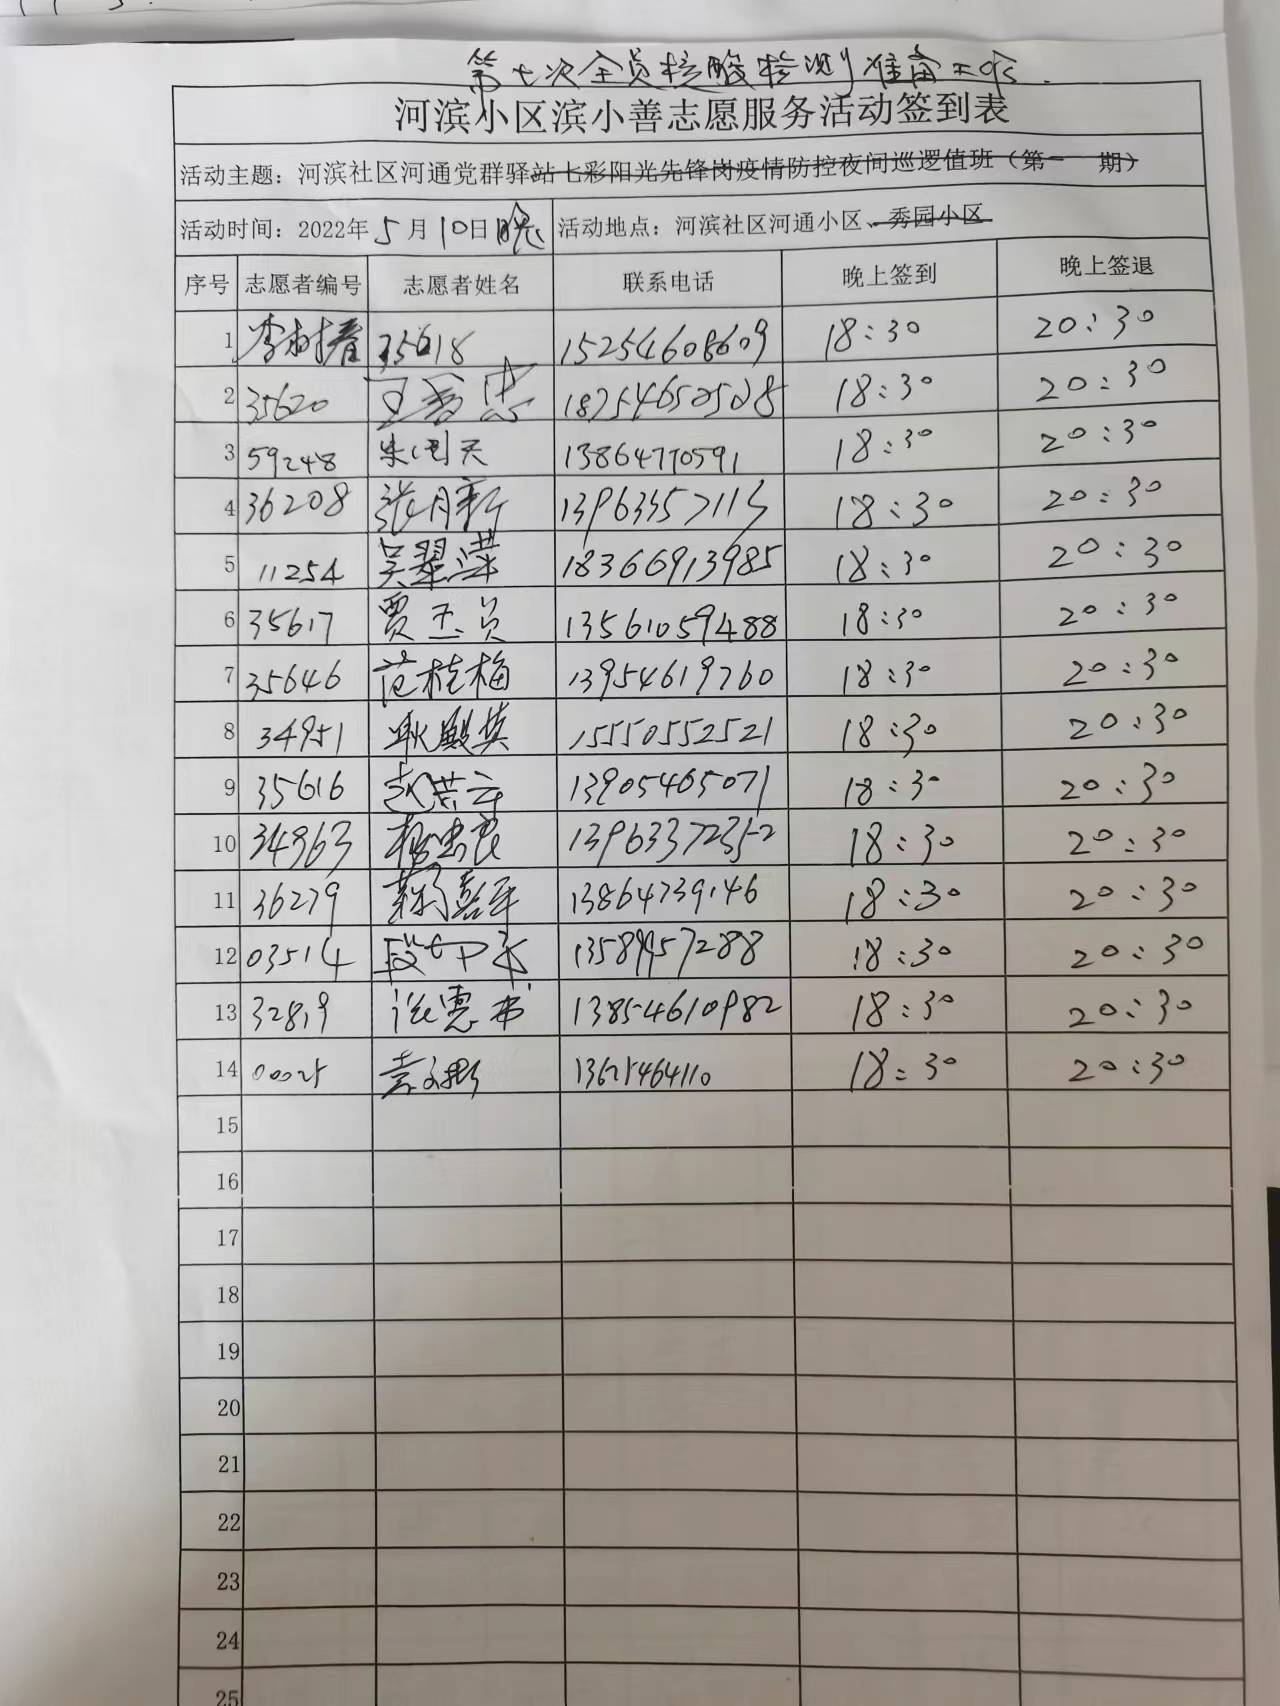 第七次全员核酸检测准备工作.
河滨小区滨小善志愿服务活动签到表
活动主题：河滨社区河通党群驿站七彩阳光先锋岗疫情防控夜间巡逻值班（第一 期）
活动时间：2022年5月10日晚 活动地点：河滨社区河通小区、秀园小区
序号 志愿者编号 志愿者姓名 联系电话 晚上签到 晚上签退
1 李树春 35618 15254608609 18:30 20:30
2 35620 王 忠 18754650528 18:30 20:30
3 59248 朱 天 13864770591 18:30 20:30
4 36208 张月新 13963357113 18:30 20:30
5 11254 吴翠萍 18366913985 18:30 20:30
6 35617 贾玉贞 13561059488 18:30 20:30
7 35646 范桂梅 13954619760 18:30 20:30
8 34951 耿殿英 15550552521 18:30 20:30
9 35616 赵 13905465071 18:30 20:30
10 34963 杨忠良 13963372352 18:30 20:30
11 36279 13864739146 18:30 20:30
12 03514 段 13589957288 18:30 20:30
13 32819 13854610982 18:30 20:30
14 00025 袁 13625464110 18:30 20:30
15
16
17
18
19
20
21
22
23
24
25